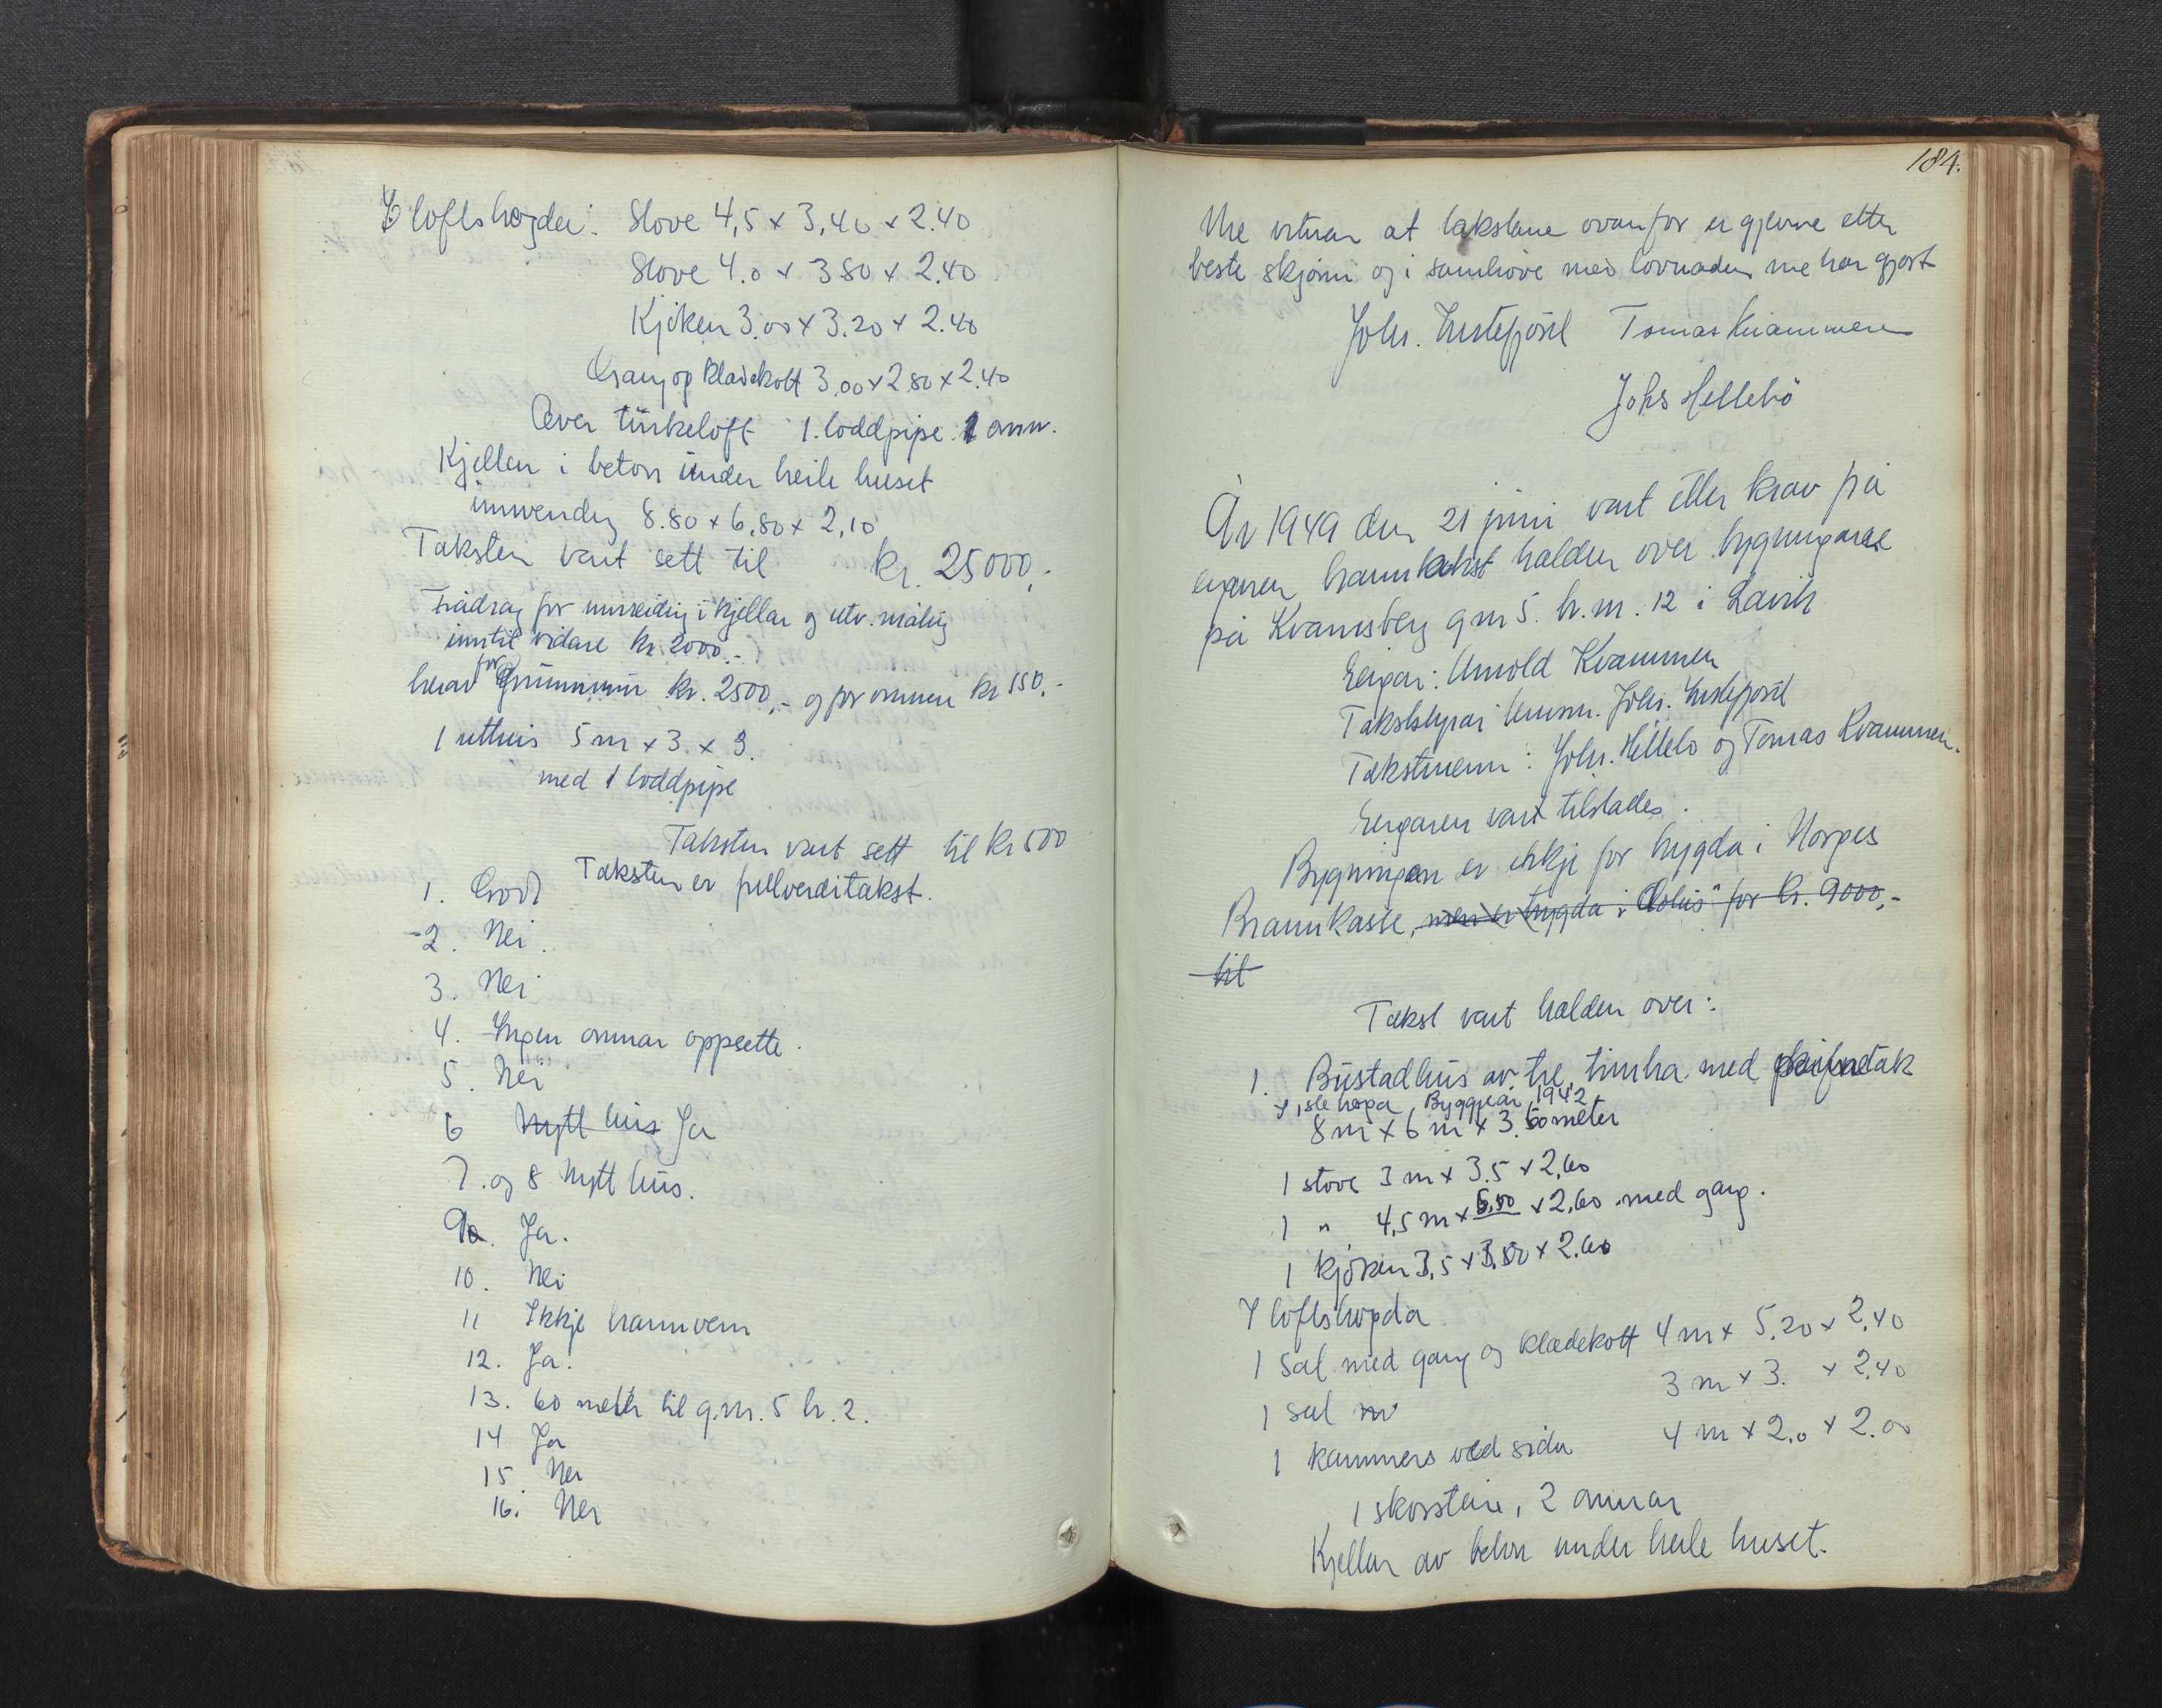 I loftshøgdi: Stove 4,5 x 3,40 x 2.40
Stove 4.0 x 3.80 x 2.40
Kjøken 3.00 x 3.20 x 2.40
Gang og klædekott 3,00 x 2.80 x 2.40
Over turkeloft 1. loddpipe 1 omn.
Kjellar i betong under heile huset
innvendig 8.80 x 6,80 x 2,10
Taksten vart sett til kr. 25000,-
Frådrag for innreiding i kjellar og utv. måling
inntil vidare kr. 2000.-
herav for grunnmur kr. 2500,- og for omnen kr 150.-
1 uthus 5 m x 3. x 3.
med 1 loddpipe
Taksten vart sett til kr 500
Taksten er fullverditakst.
1. God
2. Nei.
3. Nei
4. Ingen omnar oppsette.
5. Nei
6 Nytt hus Ja
7. og 8 Nytt hus.
9. Ja.
10. Nei
11 Ikkje brannvern
12. Ja.
13. 60 meter til g.nr. 5 br. 2.
14 Ja
15. Nei
16. Nei
184.
Me vitnar at takstane ovanfor er gjevne etter
beste skjønn og i samhøve med lovnaden me har gjort
Johs. Instefjord Tomas Kvammen
Johs Hellebö
År 1949 den 21 juni vart etter krav frå
eigaren branntakst halden over bygningane
på Kvamsberg gnr 5. br.nr. 12 i Lavik
Eigar: Arnold Kvammen
Takststyrar lensm. Johs. Instefjord
Takstmenn: Johs. Hellebo og Tomas Kvammen.
Eigaren vart tilstades.
Bygningen er ikkje før trygda i Norges
Brannkasse, men er trygda i "Æolus" for kr. 9000,-
til
Takst vart halden over:
1. Bustadhus av tre, timbra med skifertak
I 1ste høgda Byggjeår 1942
8 m x 6 m x 3.50 meter
1 stove 3 m x 3.5 x 2,60
1 " 4,5 m x x 2,60 med gang.
1 kjøken 3,5 x 3,50 x 2.60
I loftshøgda
1 sal med gang og klædekott 4 m x 5.20 x 2,40
1 sal 3 m x 3. x 2,40
1 kammers ved sida 4 m x 2.0 x 2.00
1 skorstein, 2 omnar
Kjellar av betong under heile huset.